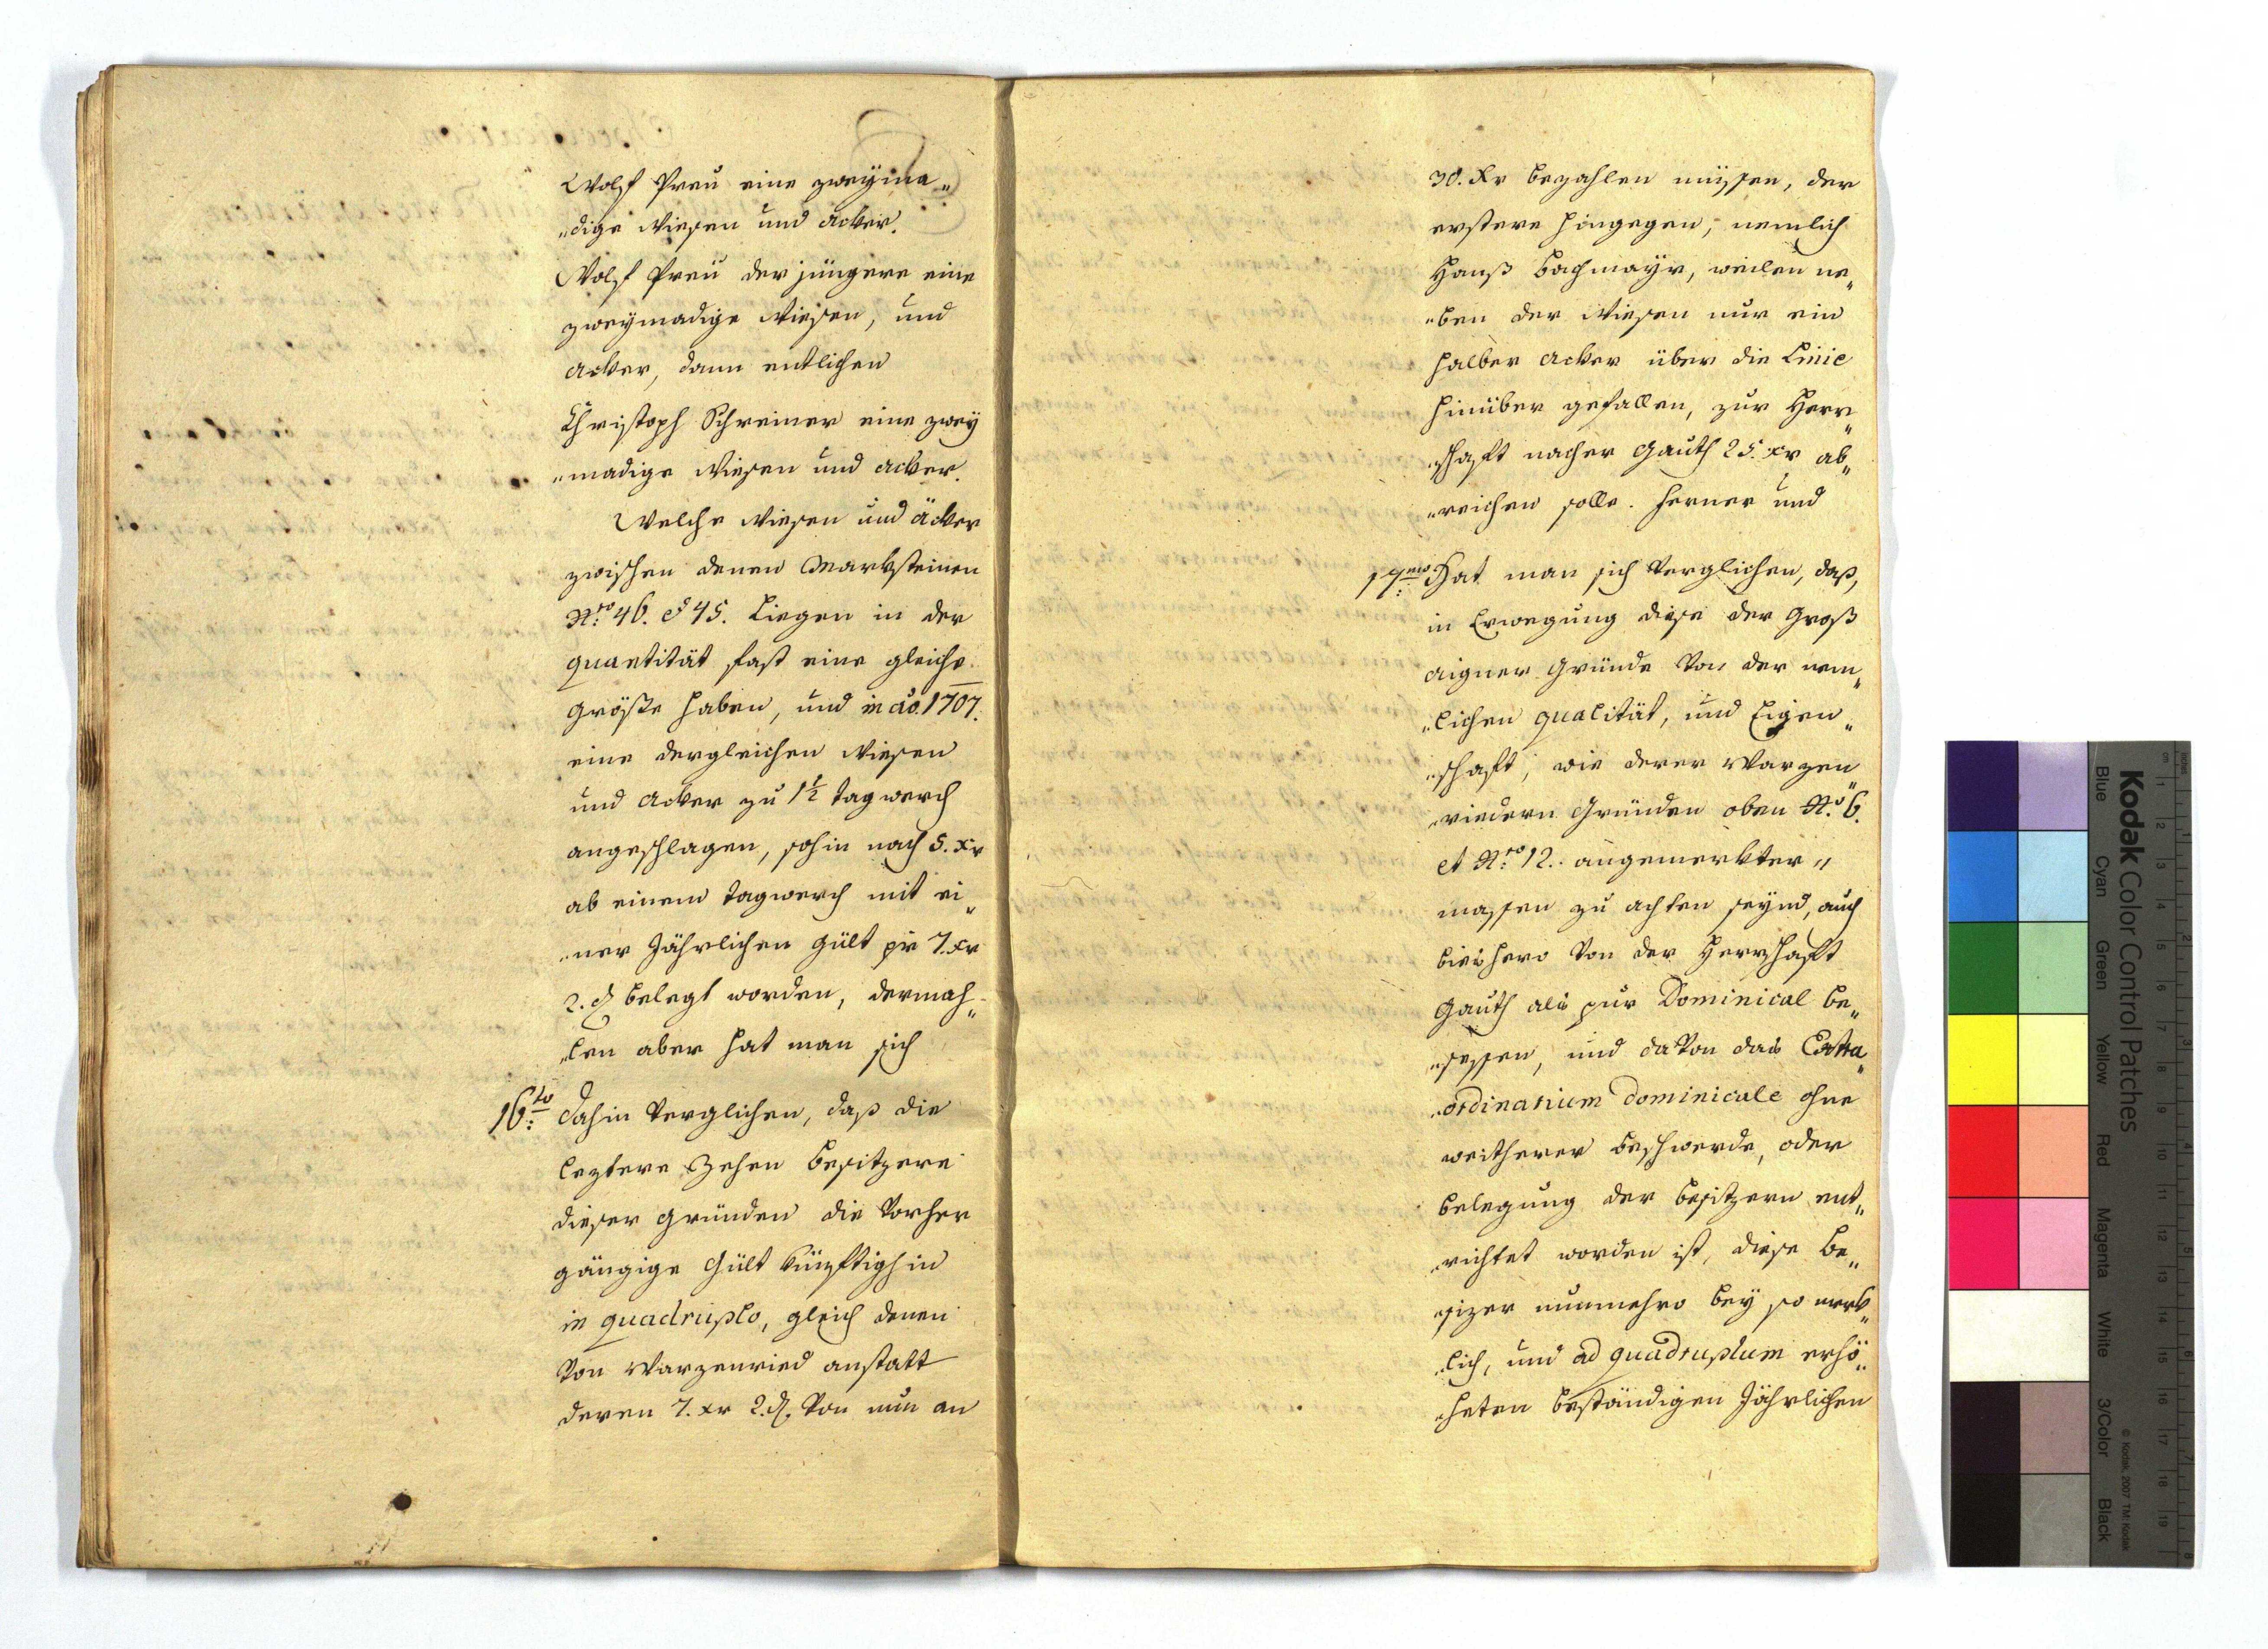 Wolf Preu eine zweyma„
„dige Wiesen und Acker.
Wolf Preu der jüngere eine
zweymadige Wiesen, und
Acker, dann entlichen
Christoph Schreiner eine zwey
„madige Wiesen und Acker.
Welche Wiesen und Äcker
zwischen denen Marksteinen
N:ro 46. & 45. Liegen in der
quantität fast eine gleiche
größe haben, und in ao. 1707.
eine dergleichen Wiesen
und Acker zu 1½ tagwerch
angeschlagen, sohin nach 5. xr
ab einem tagwerch mit ei„
„ner Jährlichen Gült pr 7. xr
2. d belegt worden, dermah„
„len aber hat man sich
16:to dahin Verglichen, daß die
leztere Zehen Besitzere
dieser Gründen die Vorher
gängige Gült künftighin
in quadruplo, gleich denen
Von Warzenried anstatt
deren 7. xr 2. d. Von nun an
30. Xr bezahlen müssen, der
erstere hingegen, nemlich
Hanß Bachmayr, weilen ne„
„ben der Wiesen nur ein
halber Acker über die Linie
hinüber gefallen, zur Herr„
„schaft nacher Gauth 25. xr ab„
„reichen solle. Ferner und
17:mo Hat man sich Verglichen, daß,
in Erwegung diese der Groß
aigner Gründe Von der nem„
„lichen qualität, und Eigen„
„schaft, wie deren Warzen„
„riedern Gründen oben N:o 6.
et N:ro 12. angemerkter„
massen zu achten seynd, auch
bishero Von der Herrschaft
Gauth als pur Dominical be„
„sessen, und daVon das Extra„
„ordinarium dominicale ohne
weitherer Beschwerde, oder
belegung der Besitzern ent„
„richtet worden ist, diese Be„
„sizer nunmehro bey so merk„
„lich, und ad quadruplum erhö„
„heten beständigen Jährlichen
Kodak Color Control Patches
Blue
Cyan
Green
Yellow
Red
Magenta
White
3/Color
Black
© Kodak, 2007 TM: Kodak